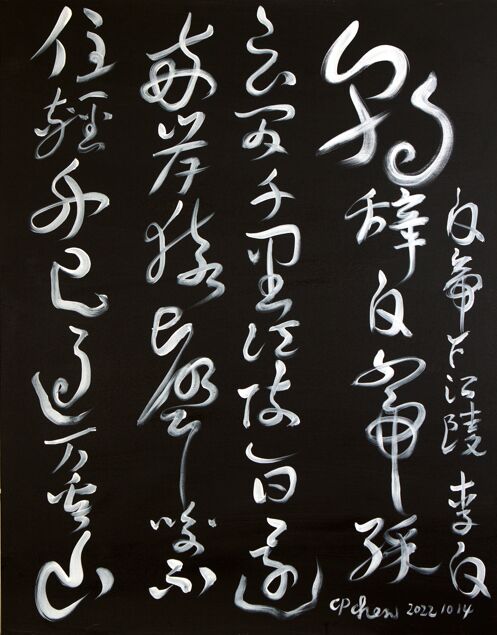 白帝下江陵 李白
朝辞白帝彩
云間千里江陵一日還
兩岸猿聲啼不
住輕舟已過万重山
CP Chen 2022 10 14